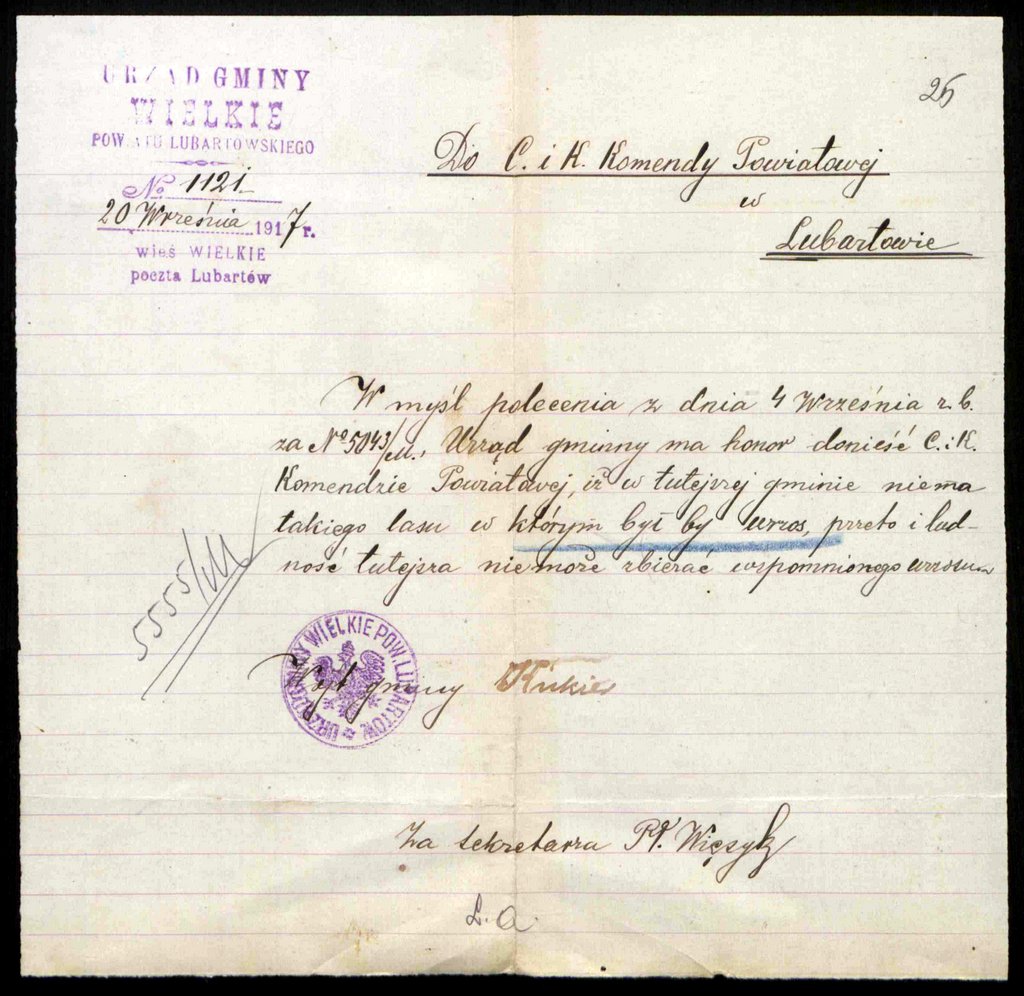 26
URZĄD GMINY
WIELKIE
POWIATU LUBARTOWSKIEGO
№ 1121
20 Września 1917 r.
wieś WIELKIE
poczta Lubartów
Do C. i K. Komendy Powiatowej
w
Lubartowie
W myśl polecenia z dnia 4 Września r. b.
za № 5043/M., Urząd gminny ma honor donieść C. i K.
Komendzie Powiatowej, iż w tutejszej gminie niema
takiego lasu w którym był by wrzos, przeto i lud-
ność tutejsza nie może zbierać wspomnionego wrzosu
5555/M
URZĄD GMINY WIELKIE POW. LUBARTOW.
Wójt gminy
Za sekretarza Więsyk
L. A.